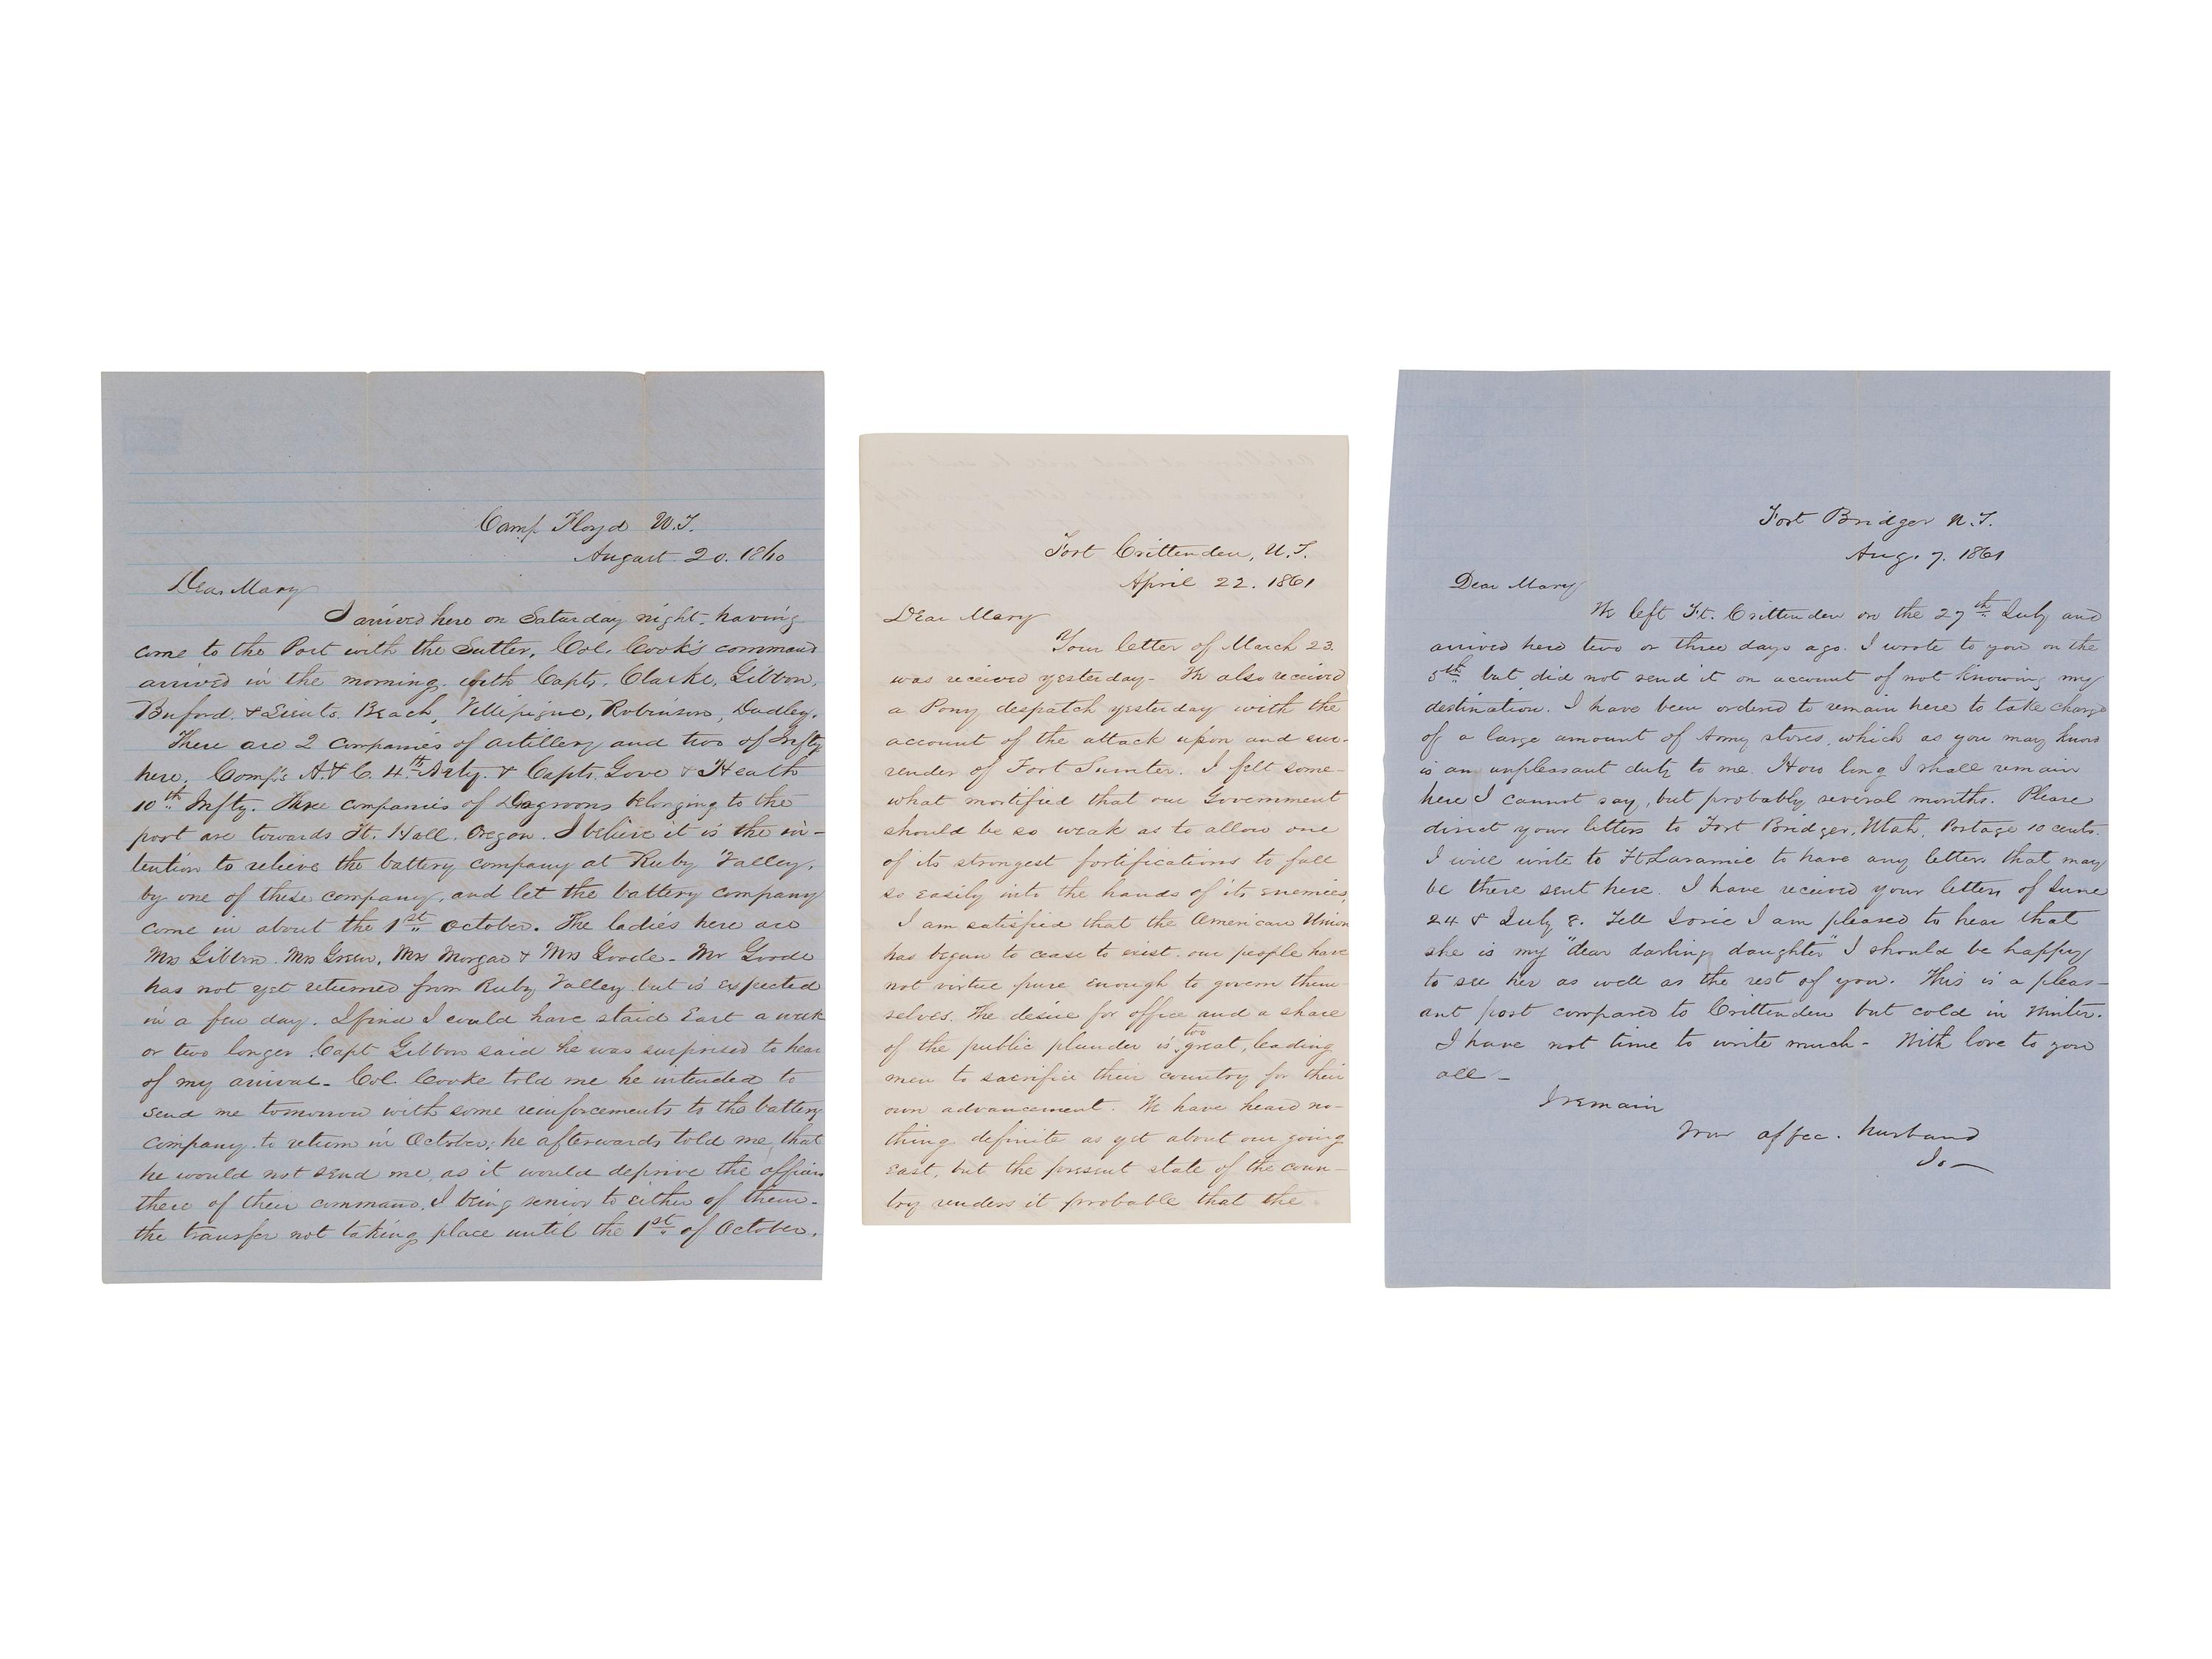 Camp Floyd U.T.
August 20. 1860
Dear Mary
I arived here on Saturday night, having
come to the Post with the Sutler, Col. Cook's command
arrived in the morning, with Capts. Clarke, Gibbon,
Buford, & Lieuts. Beach, Villipigue, Robinson, Dudley.
There are 2 companies of artillery and two of Infty
here. Comp's A. & C. 4th Arty. & Capts. Gove & Heath
10th Infty. Three companies of Dagroons belonging to the
post are towards Ft. Hall. Oregon. I believe it is the in-
tention to relieve the battery company at Ruby Valley,
by one of these company, and let the battery company
come in about the 1st October. The ladies here are
Mrs Gibbon. Mrs Green, Mrs Morgan & Mrs Goode - Mr Goode
has not yet returned from Ruby Valley but is expected
in a few day. I find I could have staid East a week
or two longer. Capt Gibbon said he was surprised to hear
of my arival - Col. Cooke told me he intended to
send me tomorrow with some reinforcements to the battery
company. to return in October; he afterwards told me that
he would not send me, as it would deprive the officers
there of their command, I being senior to either of them -
the transfer not taking place until the 1st of October.
Fort Crittenden, U.T.
April 22. 1861
Dear Mary
Your letter of March 23.
was received yesterday - We also received
a Pony despatch yesterday with the
account of the attack upon and sur-
render of Fort Sumter. I felt some-
what mortified that our Government
should be so weak as to allow one
of its strongest fortifications to fall
so easily into the hands of its enemies,
I am satisfied that the American Union
has begun to cease to exist. our people have
not virtue pure enough to govern them-
selves. The desire for office and a share
of the public plunder is too great, leading
men to sacrifice their country for their
own advancement. We have heard no-
thing definite as yet about our going
East, but the present state of the coun-
try renders it probable that the
Fort Bridger U.T.
Aug. 7. 1861
Dear Mary
We left Ft. Crittenden on the 27th July and
arrived here two or three days ago. I wrote to you on the
5th but did not send it on account of not knowing my
destination. I have been ordered to remain here to take charge
of a large amount of Army stores, which as you may know
is an unpleasant duty to me. How long I shall remain
here I cannot say, but probably several months. Please
direct your letters to Fort Bridger, Utah, Postage 10 cents.
I will write to Ft Laramie to have any letters that may
be there sent here. I have received your letters of June
24 & July 8. Tell Josie I am pleased to hear that
she is my "dear darling daughter" I should be happy
to see her as well as the rest of you. This is a pleas-
ant post compared to Crittenden but cold in Winter.
I have not time to write much - With love to you
all -
I remain
Your affec. husband
Jo -